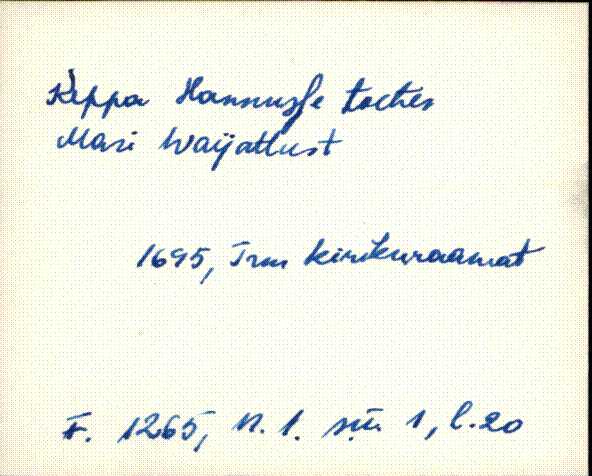 Keppa Hannusse tochter
Mari Waijatlust
1695, Trm kirikuraamat
F. 1265, n. 1. sü. 1, l. 20